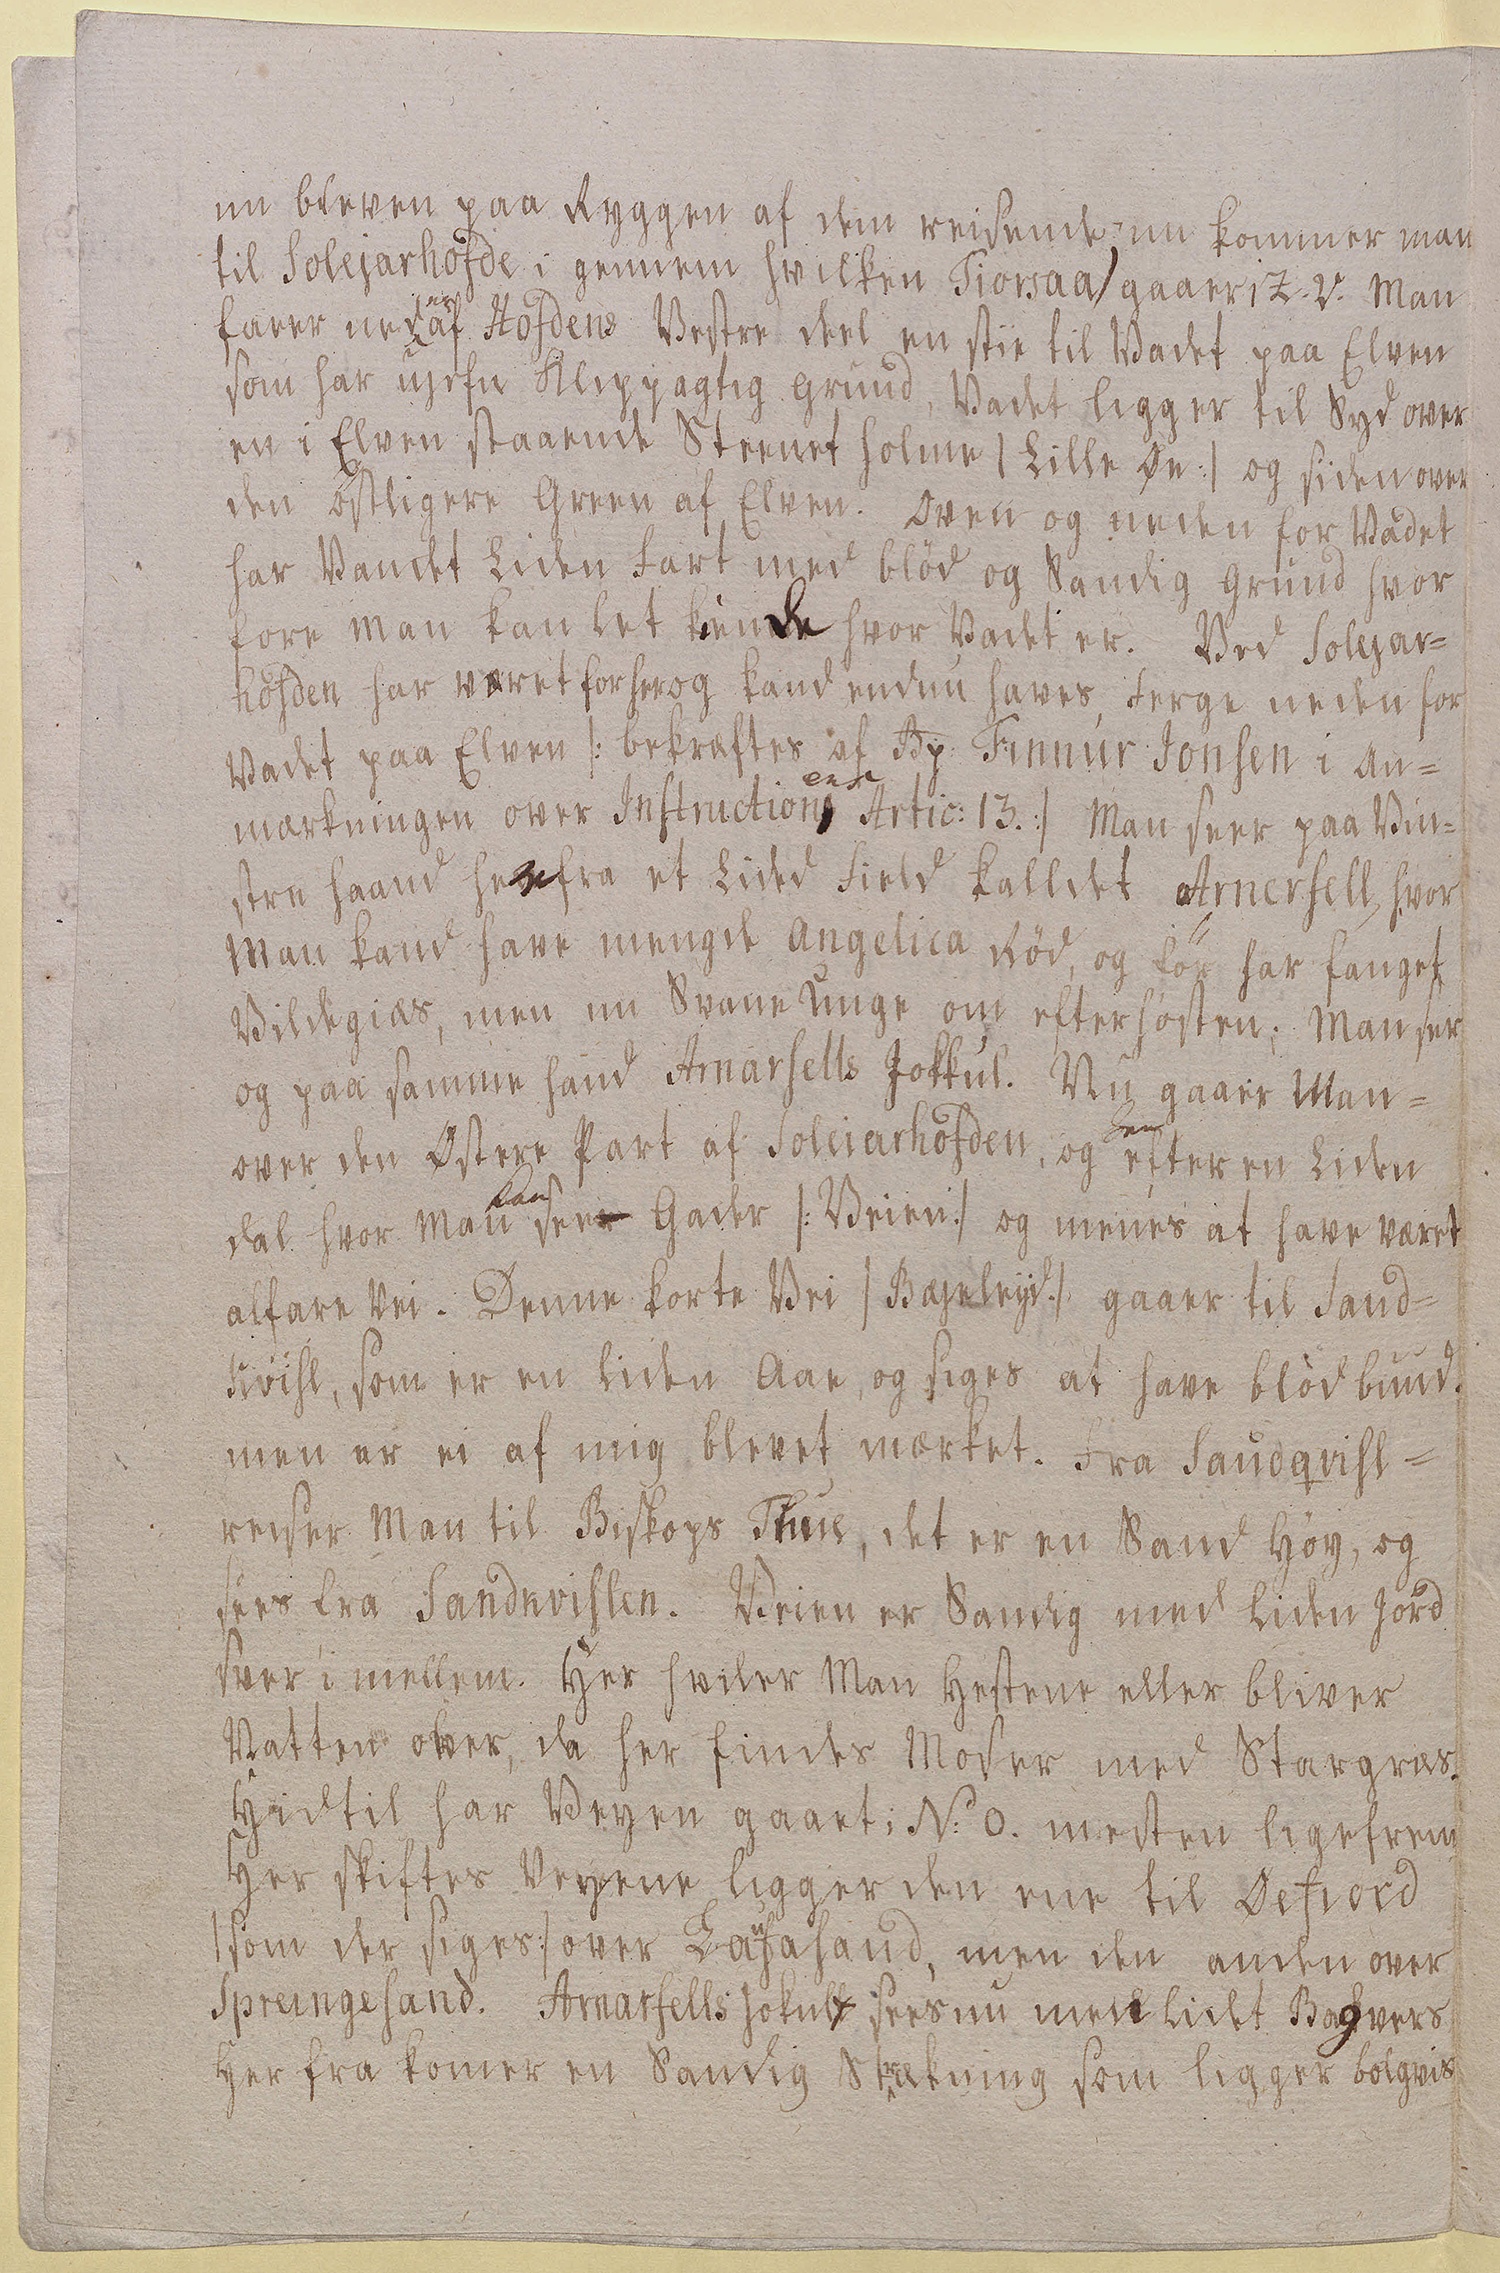 nu bleven paa Ryggen af dem reisende, nu kommer man
til Solejarhöfde i gennem hvilken Tiorsaa gaaer i Z. V. Man
farer ned af Höfdens Vestre deel en stie til Vadet paa Elven
som har ujefn Klippagtig Grund, Vadet ligger til Syd over
en i Elven staaende Steenet holme /Lille Øe:/ og siden over
den östligere Green af Elven. Oven og neden for Vadet
har Vandet Liden Fart med blöd og Sandig Grund hvor
fore man kan let kiende hvor Vadet er. Ved Solejar=
höfden har været forher og kand endnu haves, Ferge neden for
Vadet paa Elven /: bekræftes af Bp Finnur Jonsen i An=
mærkningen over Instructionens Artic: 13. :/ Man seer paa Vin=
stre haand herfra et Lided Field kalldet Arnerfell, hvor
Man kand have mengde Angelica Röd, og för har fanget
Vildegiæs, men nu Svane Unge om efterhösten; Man ser
og paa samme hand Arnarfells Jökkul. Nu gaaer Man=
over den Østere Part af Soleiarhöfden, og hen efter en Liden
dal hvor Man kand see Gader /: Veien:/ og menes at have været
alfare Vei. Denne korte Vei /Bæjeleyd:/ gaaer til Sand=
kvisl, som er en Liden Aae, og siges at have blöd bund.
men er ei af mig blevet mærket. Fra Saudqvisl=
reiser Man til Biskops Thue, det er en Sand Höy, og
sees fra Sandkvislen. Veien er Sandig med liden Jord
sver i mellem. Her hviler Man Hestene eller bliver
Natten over, da her findes Moser med Stargræs.
Hidtil har Veyen gaaet i N. O. mesten ligefrem
Her skiftes Veyene ligger den ene til Øefiord
/som der siges:/ over Laufasand, men den anden over
Spreingesand. Arnarfells Jökul sees nu med lidt Bagvers
Her fra komer en Sandig Strækning som ligger bölgvis